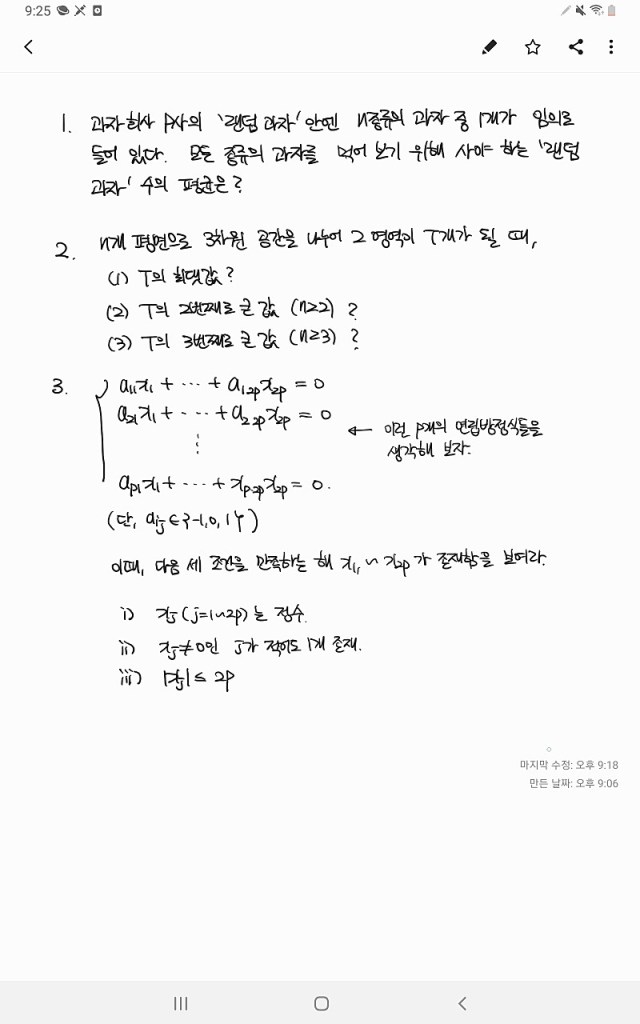 9:25
1. 과자회사 P사의 '랜덤과자' 안엔 n종류의 과자 중 1개가 임의로
들어 있다. 모든 종류의 과자를 먹어 보기 위해 사야 하는 '랜덤
과자' 수의 평균은?
2. n개 평면으로 3차원 공간을 나누어 그 영역이 T개가 될 때,
(1) T의 최댓값?
(2) T의 2번째로 큰 값 (n≥2) ?
(3) T의 3번째로 큰 값 (n≥3) ?
3. a₁₁x₁ + ··· + a₁,₂ₚx₂ₚ = 0
a₂₁x₁ + ··· + a₂ ₂ₚx₂ₚ = 0
← 이런 p개의 연립방정식들을
생각해 보자.
aₚ₁x₁ + ··· + xₚ,₂ₚx₂ₚ = 0.
(단, aᵢⱼ ∈ {-1, 0, 1})
이때, 다음 세 조건을 만족하는 해 x₁, ~ x₂ₚ가 존재함을 보여라.
i) xⱼ (j=1~2p)는 정수.
ii) xⱼ≠0인 j가 적어도 1개 존재.
iii) |xⱼ| ≤ 2p
마지막 수정: 오후 9:18
만든 날짜: 오후 9:06